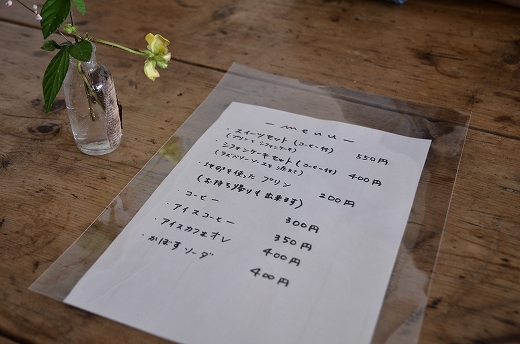 — menu —
・スイーツセット（コーヒー付） 550円
（プリン・シフォンケーキ）
・シフォンケーキセット（コーヒー付） 400円
・地卵を使ったプリン 200円
（お持ち帰りも出来ます）
・コーヒー 300円
・アイスコーヒー 350円
・アイスカフェオレ 400円
・かぼすソーダ 400円